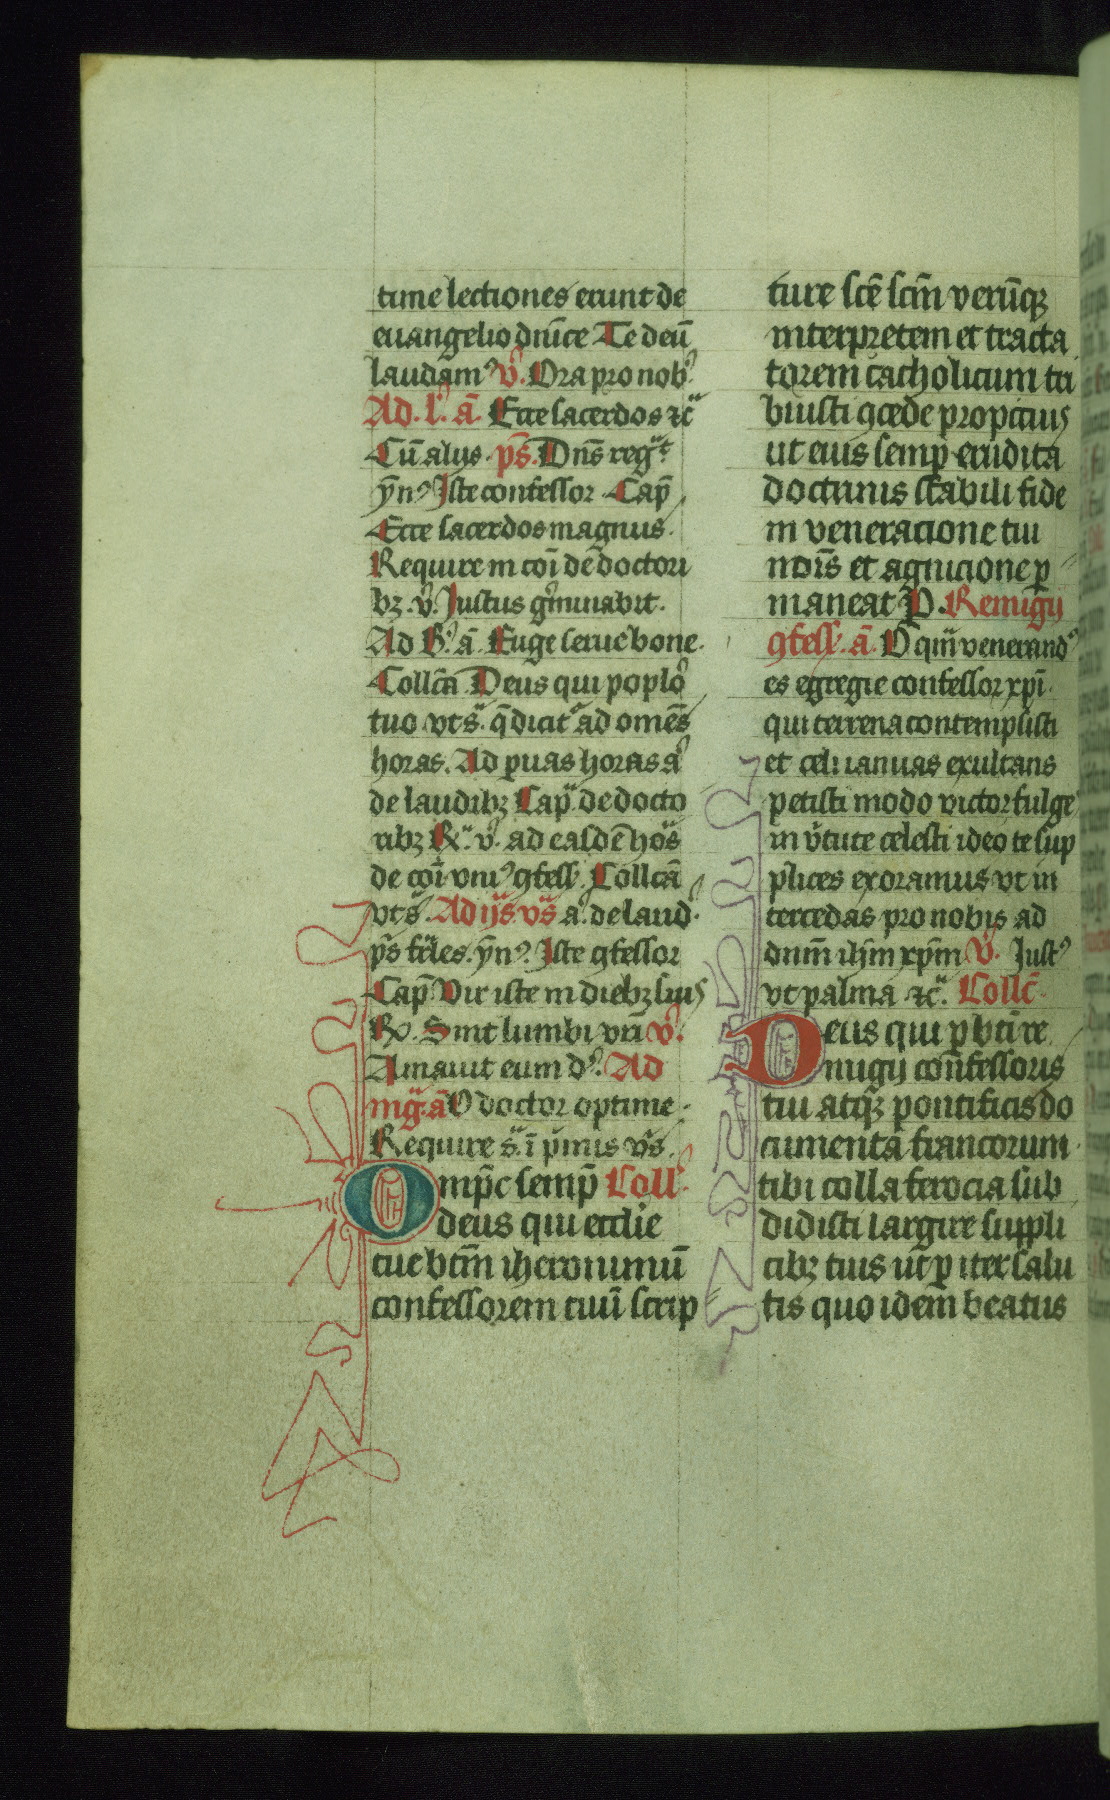 time lectiones erunt de
euangelio dnīce Te deū
laudam⁹ v̊. Ora pro nob̕
Ad. l̕. ā. Ecce sacerdos ⁊c̈
Cū alijs. ps̄. Dn̄s reg̈t
ȳn⁹ Iste confessor Cap̄
Ecce sacerdos magnus.
Require in cōi dē doctori
bꝫ. v̊. Justus g̊minabit.
Ad B̕. ā. Euge serue bone.
Collc̄a Deus qui poplo̊
tuo vt s̈. q̄ dicit᷑ ad omēs
horas. Ad p̱uas horas a̕
de laudibꝫ Cap̈ de docto
ribꝫ R̈. v̊. ad easdē hōs
de cōi vni⁹ ꝯfess̕. Collcā
vt s̈. Ad ijs vs̈ a̕. de laud̕.
ps̄ fr̄les. ȳn⁹. Iste ꝯfessor
Cap̄ Vir iste in diebꝫ suis
R̕. Sint lumbi vrī v̊.
Amauit eum d⁹. Ad
mg̈. ā O doctor optime.
Require s̈. ī p̕mis vs̄.
Omp̄c semꝑ Coll̕
deus qui ecclie
tue btm̄ iheronimū
confessorem tuū scrip
ture scē scm̄ verūqꝫ
interpretem et tracta
torem catholicum tri
buisti ꝯcede propicius
ut eius semꝑ erudita
doctrinis stabili fide
in veneracione tui
nōis et agnicione ꝑ
maneat P. Remigij
ꝯfess̕. ā. O qm̄ venerand⁹
es egregie confessor xp̄i.
qui terrena contempsisti
et celi ianuas exultans
petisti modo victor fulge
in v̕tute celesti ideo te sup
plices exoramus vt in
tercedas pro nobis ad
dnm̄ ihm̄ xpm̄ v̊. Just⁹
vt palma ⁊c̈. Collc̄
Deus qui ꝑ btī re
migij confessoris
tui atqꝫ pontificis do
cumenta francorum
tibi colla ferocia sub
didisti largire suppli
cibꝫ tuis ut ꝑ iter salu
tis quo idem beatus